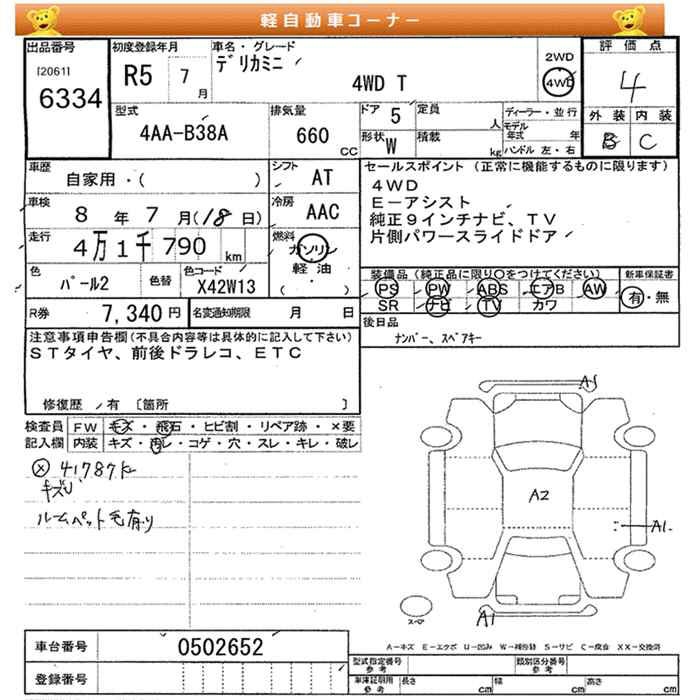 軽自動車コーナー
出品番号
[2061]
6334
初度登録年月
R5 7月
車名・グレード
デリカミニ
4WD T
2WD
4WD
評価点
4
型式
4AA-B38A
排気量
660 CC
ドア 5
形状 W
定員 人
積載 kg
ディーラー・並行
モデル年式 年
ハンドル 左・右
外装 内装
B C
車歴
自家用・( )
シフト
AT
車検
8年 7月(18日)
冷房
AAC
走行
4万1千790 km
燃料
ガソリン
軽油
( ・ )
色
パール2
色替
色コード
X42W13
セールスポイント (正常に機能するものに限ります)
4WD
E-アシスト
純正9インチナビ、TV
片側パワースライドドア
装備品 (純正品に限り○をつけてください)
PS PW ABS エアB AW
SR ナビ TV カワ
新車保証書
有・無
R券 7,340円
名変通知期限 月 日
後日品
ナンバー、スペアキー
注意事項申告欄(不具合内容等は具体的に記入して下さい)
STタイヤ、前後ドラレコ、ETC
修復歴 有 〔箇所 〕
検査員記入欄
FW キズ・飛石・ヒビ割・リペア跡・×要
内装 キズ・汚レ・コゲ・穴・スレ・キレ・破レ
41787K
キズU
ルームペット毛有り
A1
A2
A1
A1
スペア
A-キズ E-エクボ U-凹み W-補修跡 S-サビ C-腐食 XX-交換済
車台番号 0502652
登録番号
型式指定番号 参考
類別区分番号 参考
車庫証明用 参考
長さ cm 幅 cm 高さ cm